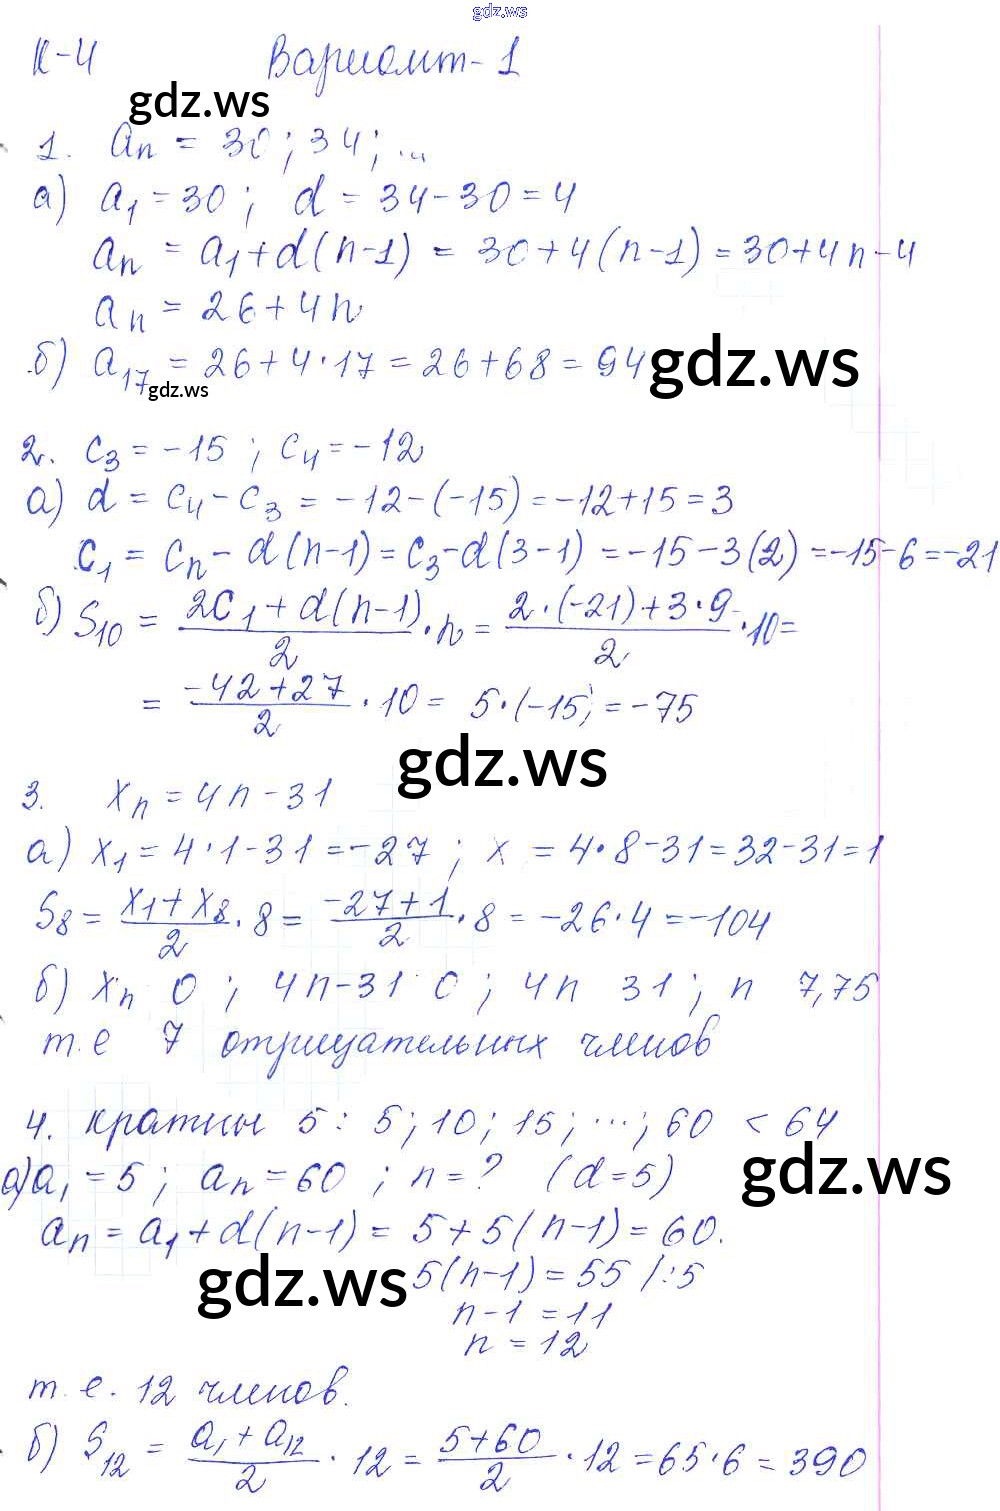 gdz.ws
К-4 Вариант-1
gdz.ws
1. an = 30; 34; ...
а) a1 = 30; d = 34-30 = 4
an = a1+d(n-1) = 30+4(n-1) = 30+4n-4
an = 26+4n
б) a17 = 26+4·17 = 26+68 = 94
gdz.ws
gdz.ws
2. c3 = -15; c4 = -12
а) d = c4-c3 = -12-(-15) = -12+15 = 3
c1 = cn - d(n-1) = c3-d(3-1) = -15-3(2) = -15-6 = -21
б) S10 = (2c1+d(n-1))/2 · n = (2·(-21)+3·9)/2 · 10 =
= (-42+27)/2 · 10 = 5·(-15) = -75
gdz.ws
3. xn = 4n-31
а) x1 = 4·1-31 = -27; x = 4·8-31 = 32-31 = 1
S8 = (x1+x8)/2 · 8 = (-27+1)/2 · 8 = -26·4 = -104
б) xn 0; 4n-31 0; 4n 31; n 7,75
т.е 7 отрицательных членов
4. кратны 5: 5; 10; 15; ...; 60 < 64
gdz.ws
а) a1 = 5; an = 60; n = ? (d=5)
an = a1+d(n-1) = 5+5(n-1) = 60.
gdz.ws
5(n-1) = 55 /:5
n-1 = 11
n = 12
т.е. 12 членов.
б) S12 = (a1+a12)/2 · 12 = (5+60)/2 · 12 = 65·6 = 390